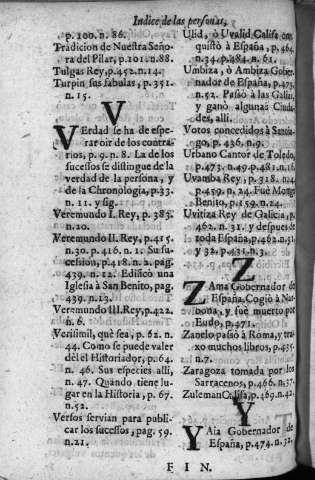 Indice de las personas,
p. 100. n. 86.
Tradicion de Nuestra Seño-
ra del Pilar, p. 101. n. 88.
Tulgas Rey, p. 452. n. 14.
Turpin sus fabulas, p. 351.
n. 15.
V
VErdad se ha de espe-
rar oir de los contra-
rios, p. 9. n. 8. La de los
sucessos se distingue de la
verdad de la persona, y
de la Chronologia, p. 33.
n. 11. y sig.
Veremundo I. Rey, p. 383.
n. 20.
Veremundo II. Rey, p. 415.
n. 30. p. 416. n. 1. Su su-
cession, p. 418. n. 2. pag.
439. n. 12. Edificò una
Iglesia à San Benito, pag.
439. n. 13.
Veremundo III. Rey, p. 422.
n. 6.
Verisimil, què sea, p. 62. n.
44. Como se puede valer
dèl el Historiador, p. 64.
n. 46. Sus especies alli,
n. 47. Quando tiene lu-
gar en la Historia, p. 67.
n. 52.
Versos servian para publi-
car los sucessos, pag. 59.
n. 21.
Ulid, ò Uvalid Califa con-
quistò à España, p. 464.
n. 34. p. 484. n. 61.
Umbiza, ò Ambiza Gober-
nador de España, p. 473.
n. 52. Passò à las Galias,
y ganò algunas Ciuda-
des, alli.
Votos concedidos à Santia-
go, p. 436. n. 9.
Urbano Cantor de Toledo,
p. 473. n. 49. p. 481. n. 16.
Uvamba Rey, p. 318. n. 24.
p. 459. n. 24. Fue Monge
Benito, p. 159. n. 24.
Uvitiza Rey de Galicia, p.
462. n. 31. y despues de
toda España, p. 462. n. 31.
y 32. p. 431. n. 3.
Z
ZAma Gobernador de
España. Cogiò à Nar-
bona, y fuè muerto por
Eudo, p. 471.
Zanelo passò à Roma, y tra-
xo muchos libros, p. 435.
n. 7.
Zaragoza tomada por los
Sarracenos, p. 466. n. 37.
Zuleman Califa, p. 469. n. 42.
Y
YAia Gobernador de
España, p. 474. n. 52.
F I N.